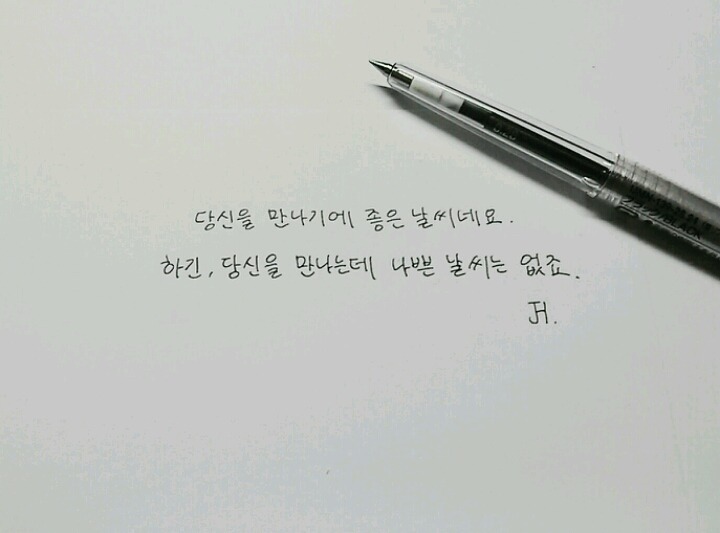 당신을 만나기에 좋은 날씨네요.
하긴, 당신을 만나는데 나쁜 날씨는 없죠.
JH.
BLACK